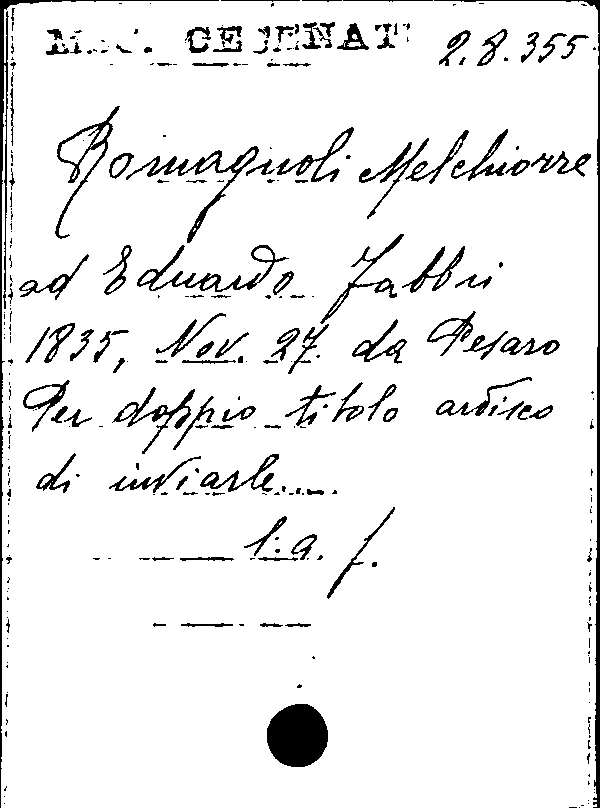 MSC. CESENATI 2.8.355
Romagnoli Melchiorre
ad Eduardo Fabbri
1835, Nov. 27. da Pesaro
Per doppio titolo ardisco
di inviarle....
l. a. f.